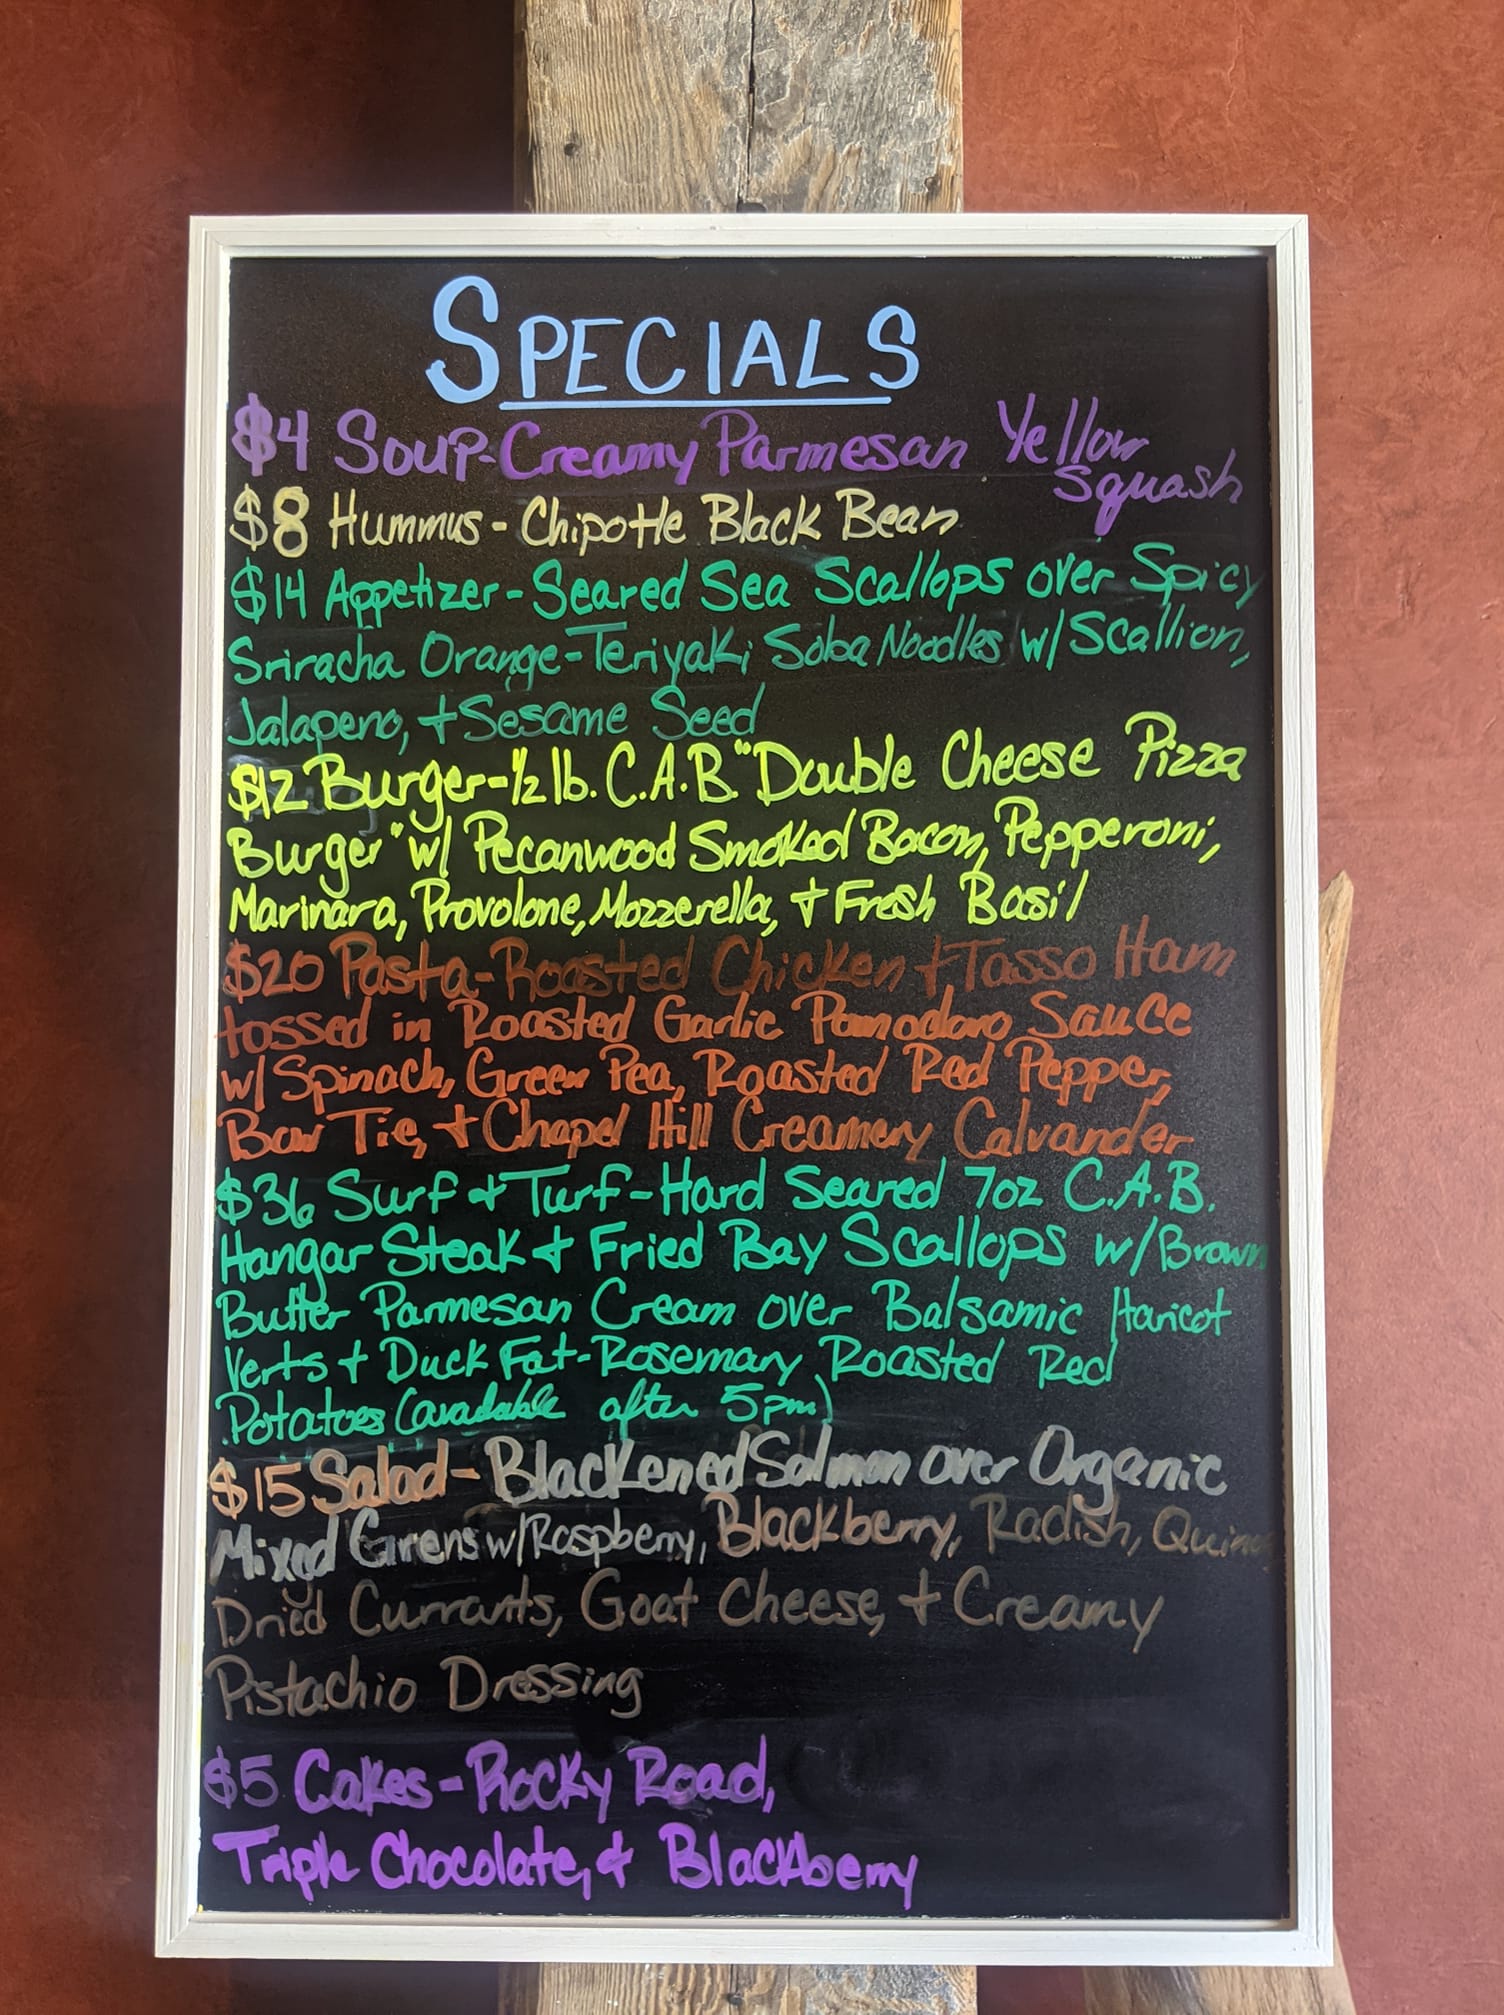 SPECIALS
$4 Soup-Creamy Parmesan Yellow
Squash
$8 Hummus - Chipotle Black Bean
$14 Appetizer - Seared Sea Scallops over Spicy
Sriracha Orange-Teriyaki Soba Noodles w/ Scallion,
Jalapeno, + Sesame Seed
$12 Burger-1/2 lb. C.A.B. "Double Cheese Pizza
Burger" w/ Pecanwood Smoked Bacon, Pepperoni,
Marinara, Provolone, Mozzerella, + Fresh Basil
$20 Pasta-Roasted Chicken + Tasso Ham
tossed in Roasted Garlic Pomodoro Sauce
w/ Spinach, Green Pea, Roasted Red Pepper,
Bow Tie, + Chapel Hill Creamery Calvander
$36 Surf + Turf - Hard Seared 7oz C.A.B.
Hangar Steak + Fried Bay Scallops w/ Brown
Butter Parmesan Cream over Balsamic Haricot
Verts + Duck Fat-Rosemary Roasted Red
Potatoes (available after 5pm)
$15 Salad - Blackened Salmon over Organic
Mixed Greens w/ Raspberry, Blackberry, Radish, Quinoa
Dried Currants, Goat Cheese, + Creamy
Pistachio Dressing
$5 Cakes - Rocky Road,
Triple Chocolate, + Blackberry